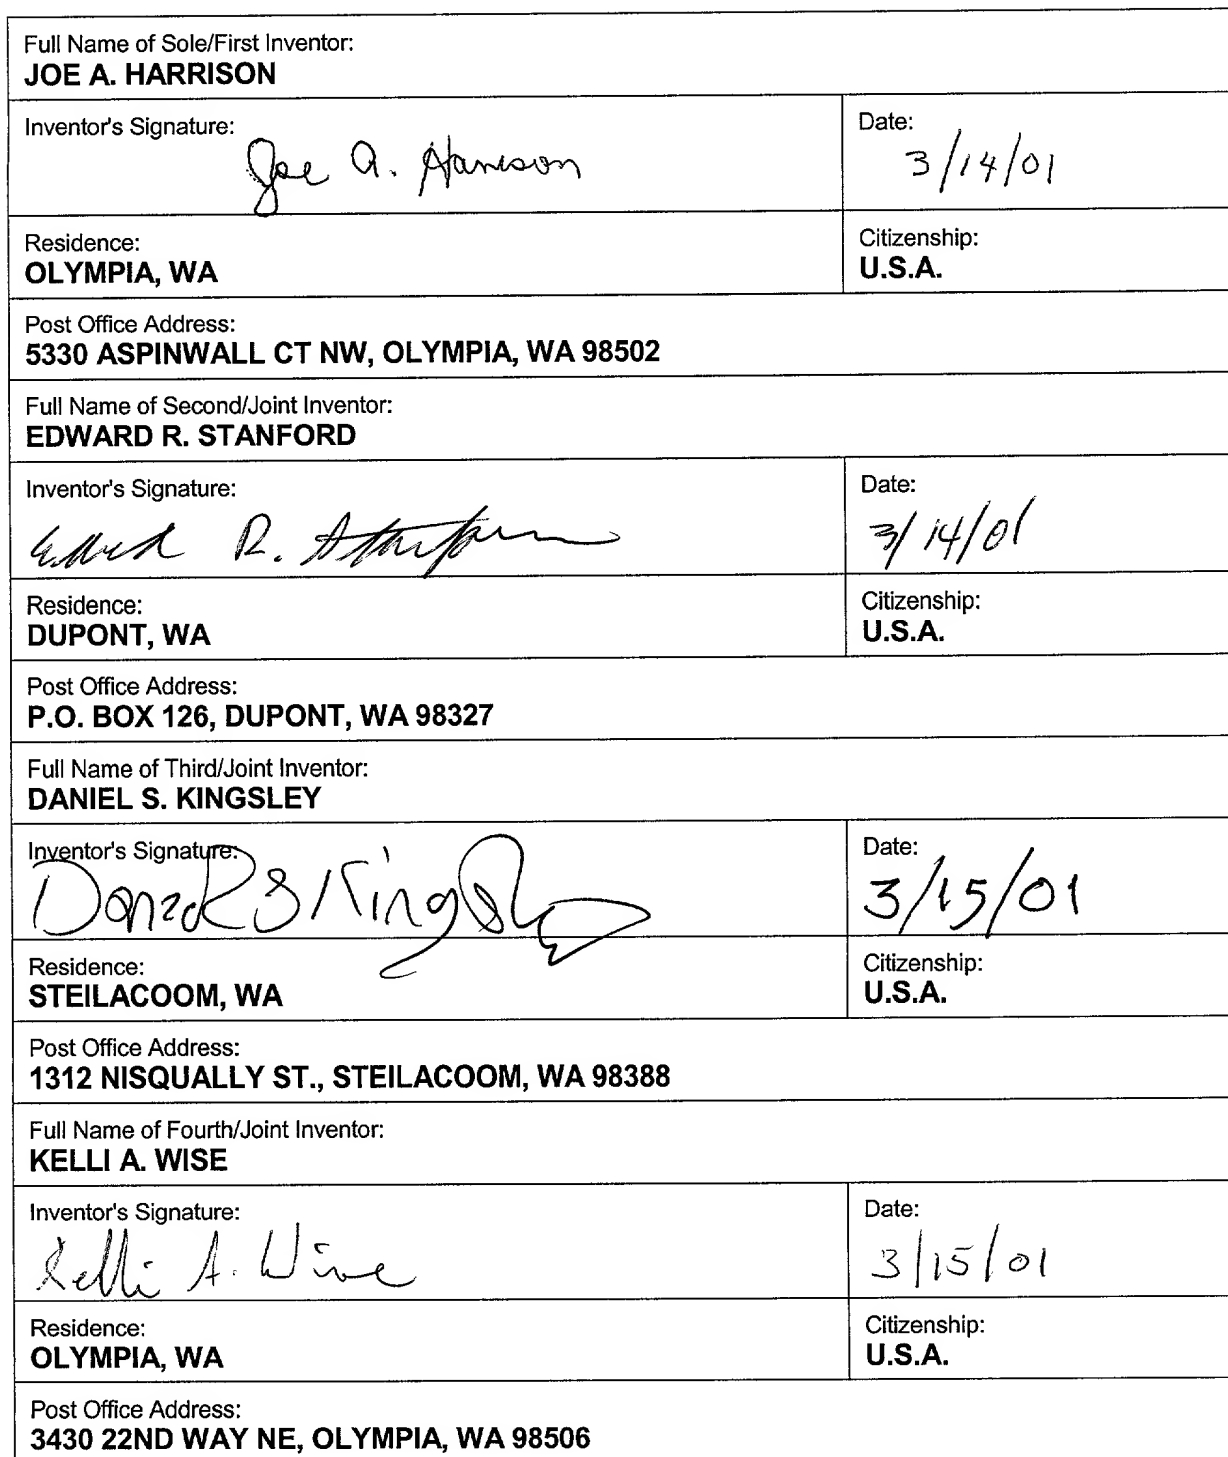 Full Name of Sole/First Inventor:
JOE A. HARRISON
Inventor's Signature:
Joe A. Harrison
Date:
3/14/01
Residence:
OLYMPIA, WA
Citizenship:
U.S.A.
Post Office Address:
5330 ASPINWALL CT NW, OLYMPIA, WA 98502
Full Name of Second/Joint Inventor:
EDWARD R. STANFORD
Inventor's Signature:
R.
Date:
3/14/01
Residence:
DUPONT, WA
Citizenship:
U.S.A.
Post Office Address:
P.O. BOX 126, DUPONT, WA 98327
Full Name of Third/Joint Inventor:
DANIEL S. KINGSLEY
Inventor's Signature:
Daniel S Kingsley
Date:
3/15/01
Residence:
STEILACOOM, WA
Citizenship:
U.S.A.
Post Office Address:
1312 NISQUALLY ST., STEILACOOM, WA 98388
Full Name of Fourth/Joint Inventor:
KELLI A. WISE
Inventor's Signature:
Kelli A. Wise
Date:
3/15/01
Residence:
OLYMPIA, WA
Citizenship:
U.S.A.
Post Office Address:
3430 22ND WAY NE, OLYMPIA, WA 98506